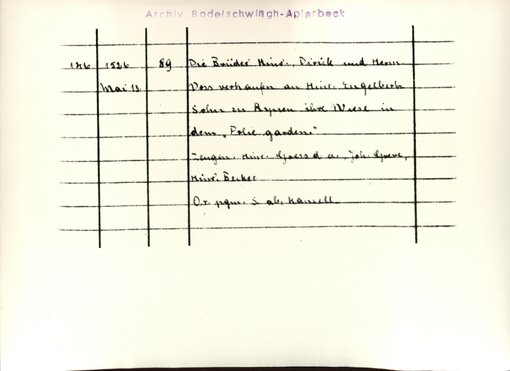 Archiv Bodelschwingh-Aplerbeck
146 1526 89 Die Brüder Hinr., Dirick und Herm
Mai 12 Voss verkaufen an Hinr. Engelberts
Sohn zu Rynen ihre Wiese in
dem „ garden."
Zeugen: Hinr. Joh.
Hinr. Becker
Or. pgm. S. ab.